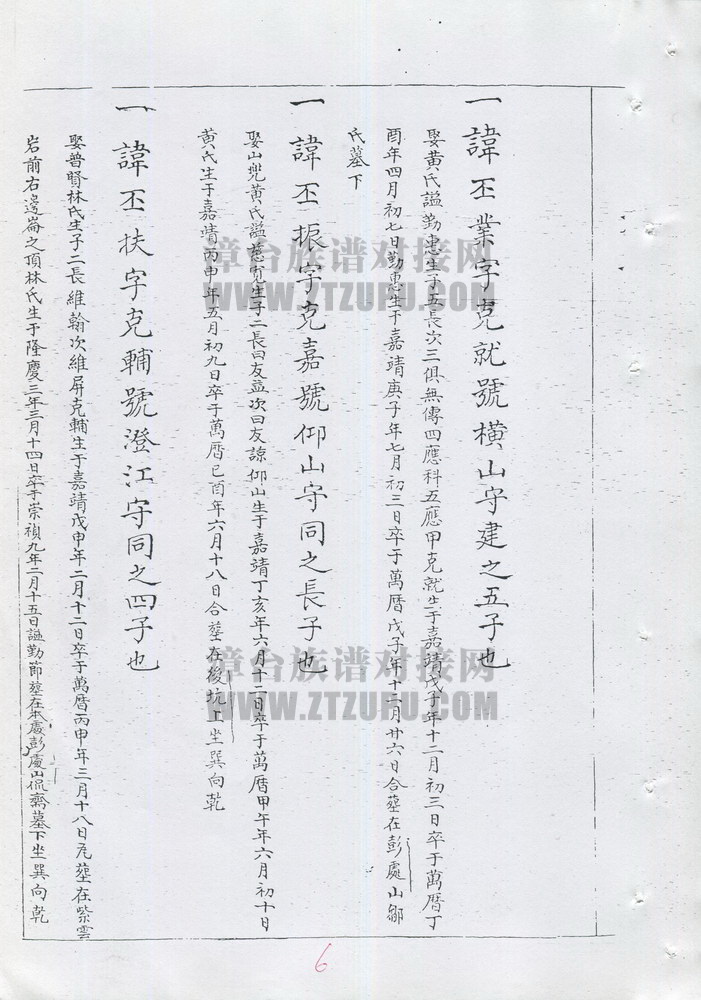 一諱丕業字克就號橫山守建之五子也
娶黃氏謚勤惠生子五長次三俱無傳四應科五應甲克就生于嘉靖戊子年十二月初三日卒于萬曆丁
酉年四月初七日勤惠生于嘉靖庚子年七月初三日卒于萬曆戊子年十二月廿六日合塟在彭處山鄒
氏墓下
一諱丕振字克嘉號仰山守同之長子也
娶山兠黃氏謚慈寬生子二長曰友益次曰友諒仰山生于嘉靖丁亥年六月十二日卒于萬曆甲午年六月初十日
黃氏生于嘉靖丙申年五月初九日卒于萬曆己酉年六月十八日合塟在後坑上坐巽向乾
一諱丕扶字克輔號澄江守同之四子也
娶普賢林氏生子二長維翰次維屏克輔生于嘉靖戊申年二月十二日卒于萬曆丙申年三月十八日塟在紫雲
岩前右邊崙之頂林氏生于隆慶三年三月十四日卒于崇禎九年二月十五日謚勤節塟在本處彭處山侃齋墓下坐巽向乾
漳台族谱对接网
WWW.ZTZUPU.COM
漳台族谱对接网
WWW.ZTZUPU.COM
6